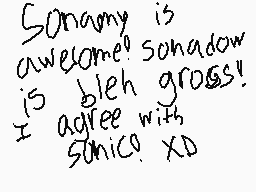 Sonamy is
awesome! sonadow
is bleh gross!
I agree with
sonic! XD